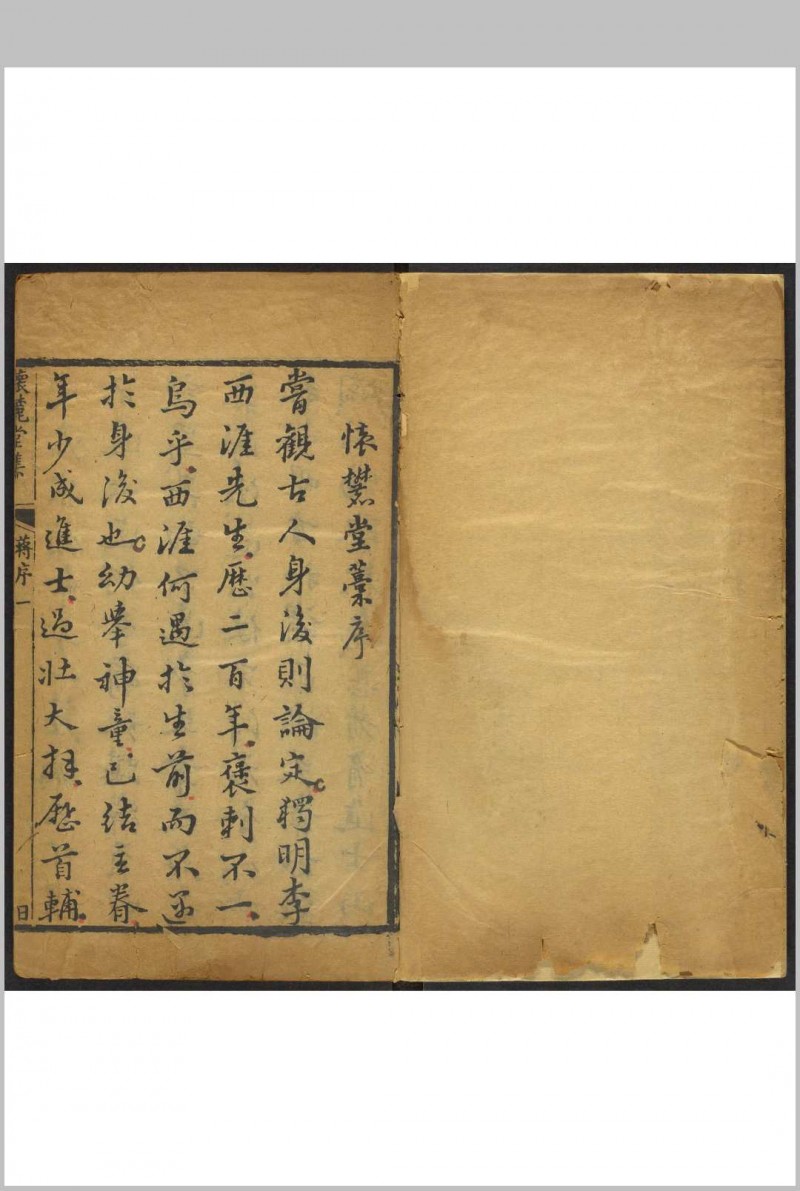 懷麓堂藳序
嘗觀古人身後則論定獨明李
西涯先生歷二百年襃刺不一
烏乎西涯何遇於生前而不遇
於身後也幼舉神童已結主眷
年少成進士過壯大拜歷首輔
懷麓堂集
蔣序
一